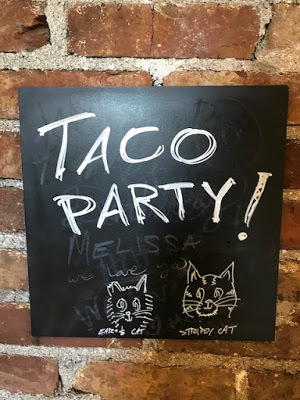 TACO
PARTY!
MELISSA
we love you
CAT
STRIPEY CAT